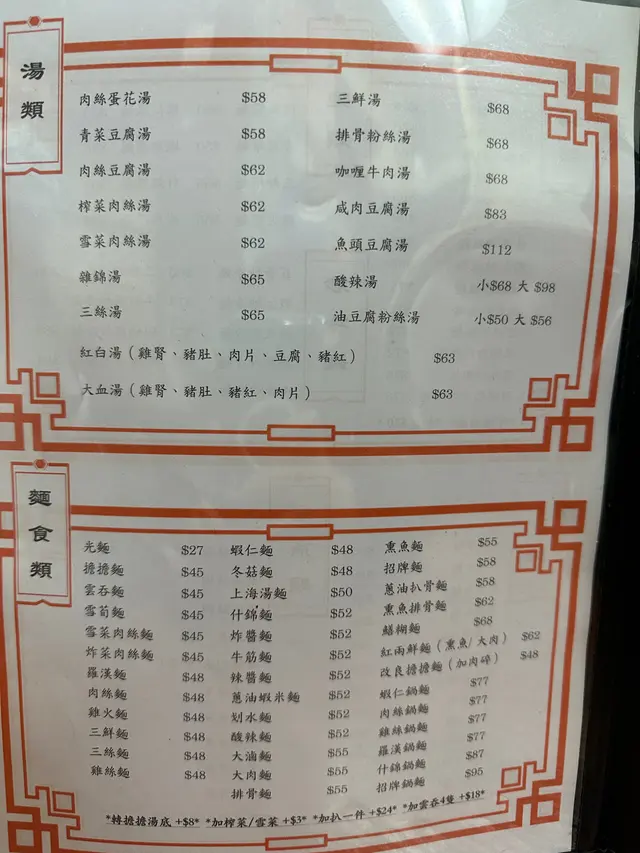 湯類
肉絲蛋花湯 $58
青菜豆腐湯 $58
肉絲豆腐湯 $62
榨菜肉絲湯 $62
雪菜肉絲湯 $62
雜錦湯 $65
三絲湯 $65
三鮮湯 $68
排骨粉絲湯 $68
咖喱牛肉湯 $68
咸肉豆腐湯 $83
魚頭豆腐湯 $112
酸辣湯 小$68 大 $98
油豆腐粉絲湯 小$50 大 $56
紅白湯（雞腎、豬肚、肉片、豆腐、豬紅） $63
大血湯（雞腎、豬肚、豬紅、肉片） $63
麵食類
光麵 $27
擔擔麵 $45
雲吞麵 $45
雪筍麵 $45
雪菜肉絲麵 $45
炸菜肉絲麵 $45
羅漢麵 $48
肉絲麵 $48
雞火麵 $48
三鮮麵 $48
三絲麵 $48
雞絲麵 $48
蝦仁麵 $48
冬菇麵 $48
上海湯麵 $50
什錦麵 $52
炸醬麵 $52
牛筋麵 $52
辣醬麵 $52
蔥油蝦米麵 $52
划水麵 $52
酸辣麵 $52
大滷麵 $55
大肉麵 $55
排骨麵 $55
熏魚麵 $55
招牌麵 $58
蔥油扒骨麵 $58
熏魚排骨麵 $62
鱔糊麵 $68
紅兩鮮麵（熏魚/大肉） $62
改良擔擔麵（加肉碎） $48
蝦仁鍋麵 $77
肉絲鍋麵 $77
雞絲鍋麵 $77
羅漢鍋麵 $77
什錦鍋麵 $87
招牌鍋麵 $95
*轉擔擔湯底 +$8* *加榨菜/雪菜 +$3* *加扒一件 +$24* *加雲吞4隻 +$18*